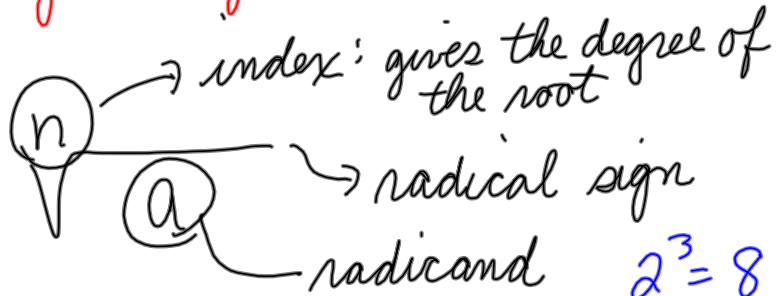 index: gives the degree of
the root
n
radical sign
a
radicand
2³ = 8